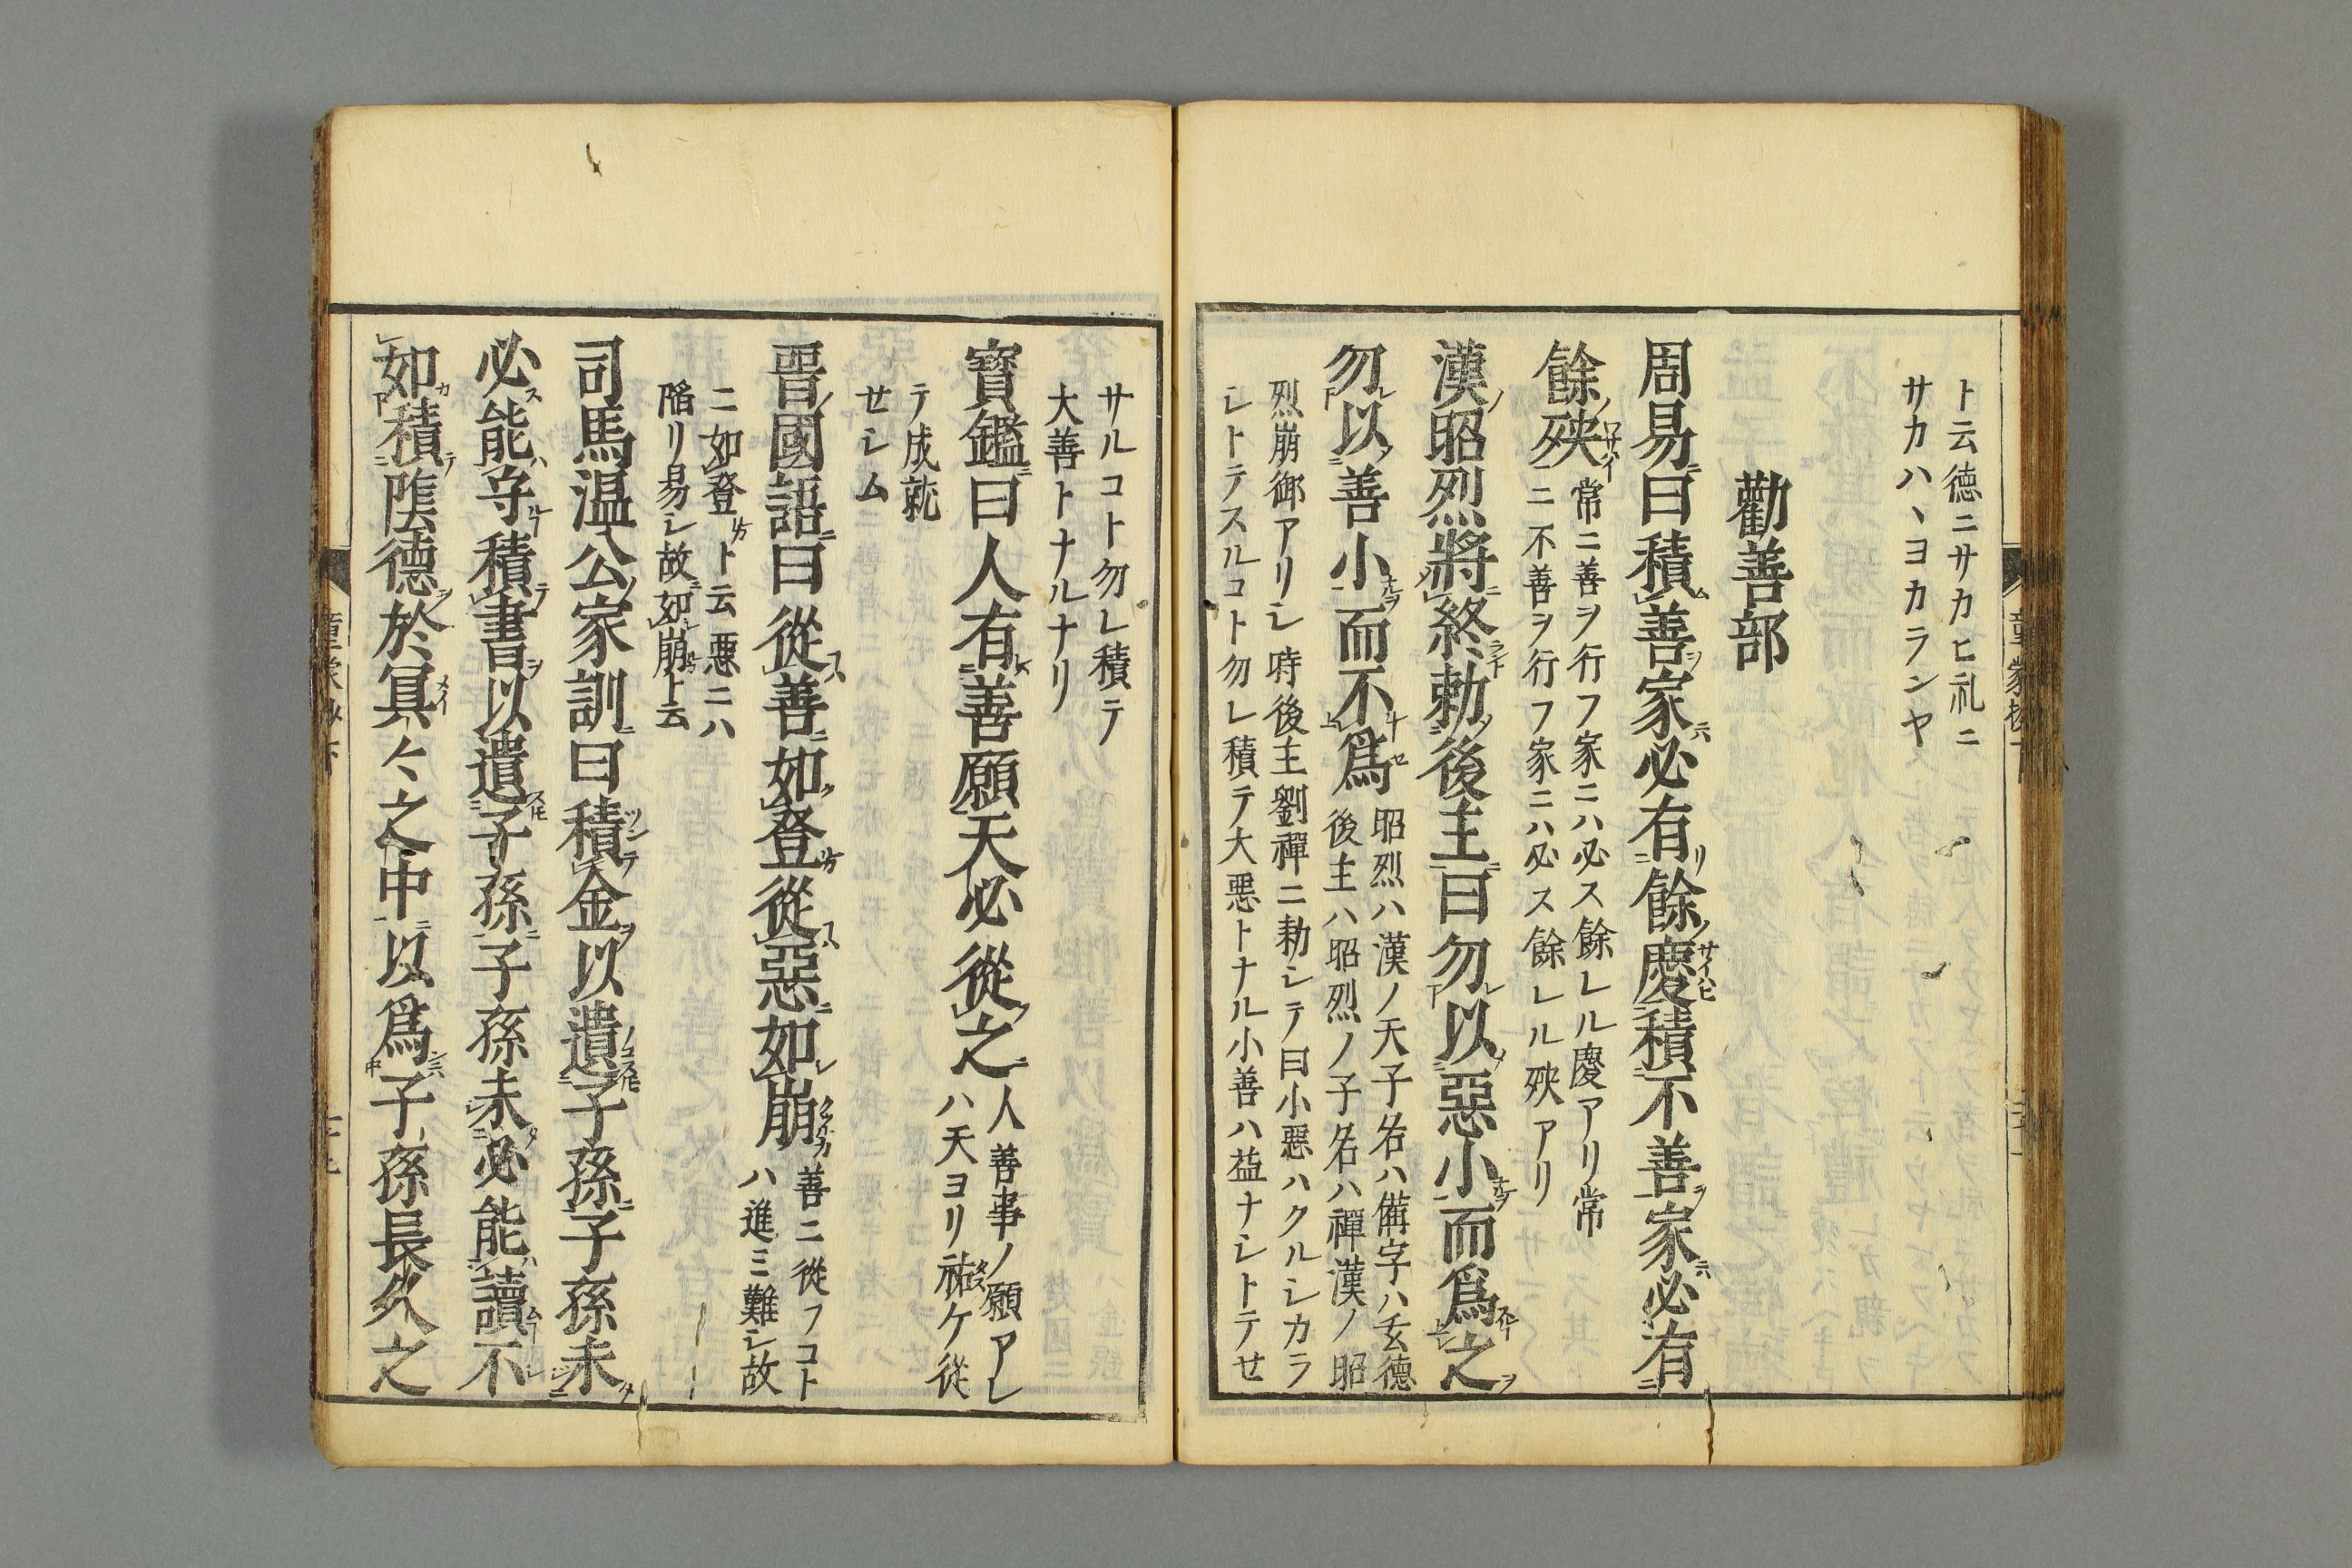 ト云徳ニサカヒ礼ニ
サカハヽヨカランヤ
勸善部
周易曰積善家必有餘慶積不善家必有
餘殃
常ニ善ヲ行フ家ニハ必ス餘レル慶アリ常
ニ不善ヲ行フ家ニハ必ス餘レル殃アリ
漢昭烈將終勅後主曰勿以惡小而爲之
勿以善小而不爲
昭烈ハ漢ノ天子名ハ備字ハ玄德
後主ハ昭烈ノ子名ハ禪漢ノ昭
烈崩御アリシ時後主劉禪ニ勅シテ曰小惡ハクルシカラ
シトテスルコト勿レ積テ大惡トナル小善ハ益ナシトテせ
サルコト勿レ積テ
大善トナルナリ
寳鑑曰人有善願天必從之
人善事ノ願アレ
ハ天ヨリ祐ケ從
テ成就
せシム
晋國語曰從善如登從惡如崩
善ニ從フコト
ハ進ミ難シ故
ニ如登ト云惡ニハ
陥リ易シ故如崩ト云
司馬温公家訓曰積金以遺子孫子孫未
必能守積書以遺子孫子孫未必能讀不
如積陰德於冥々之中以爲子孫長久之